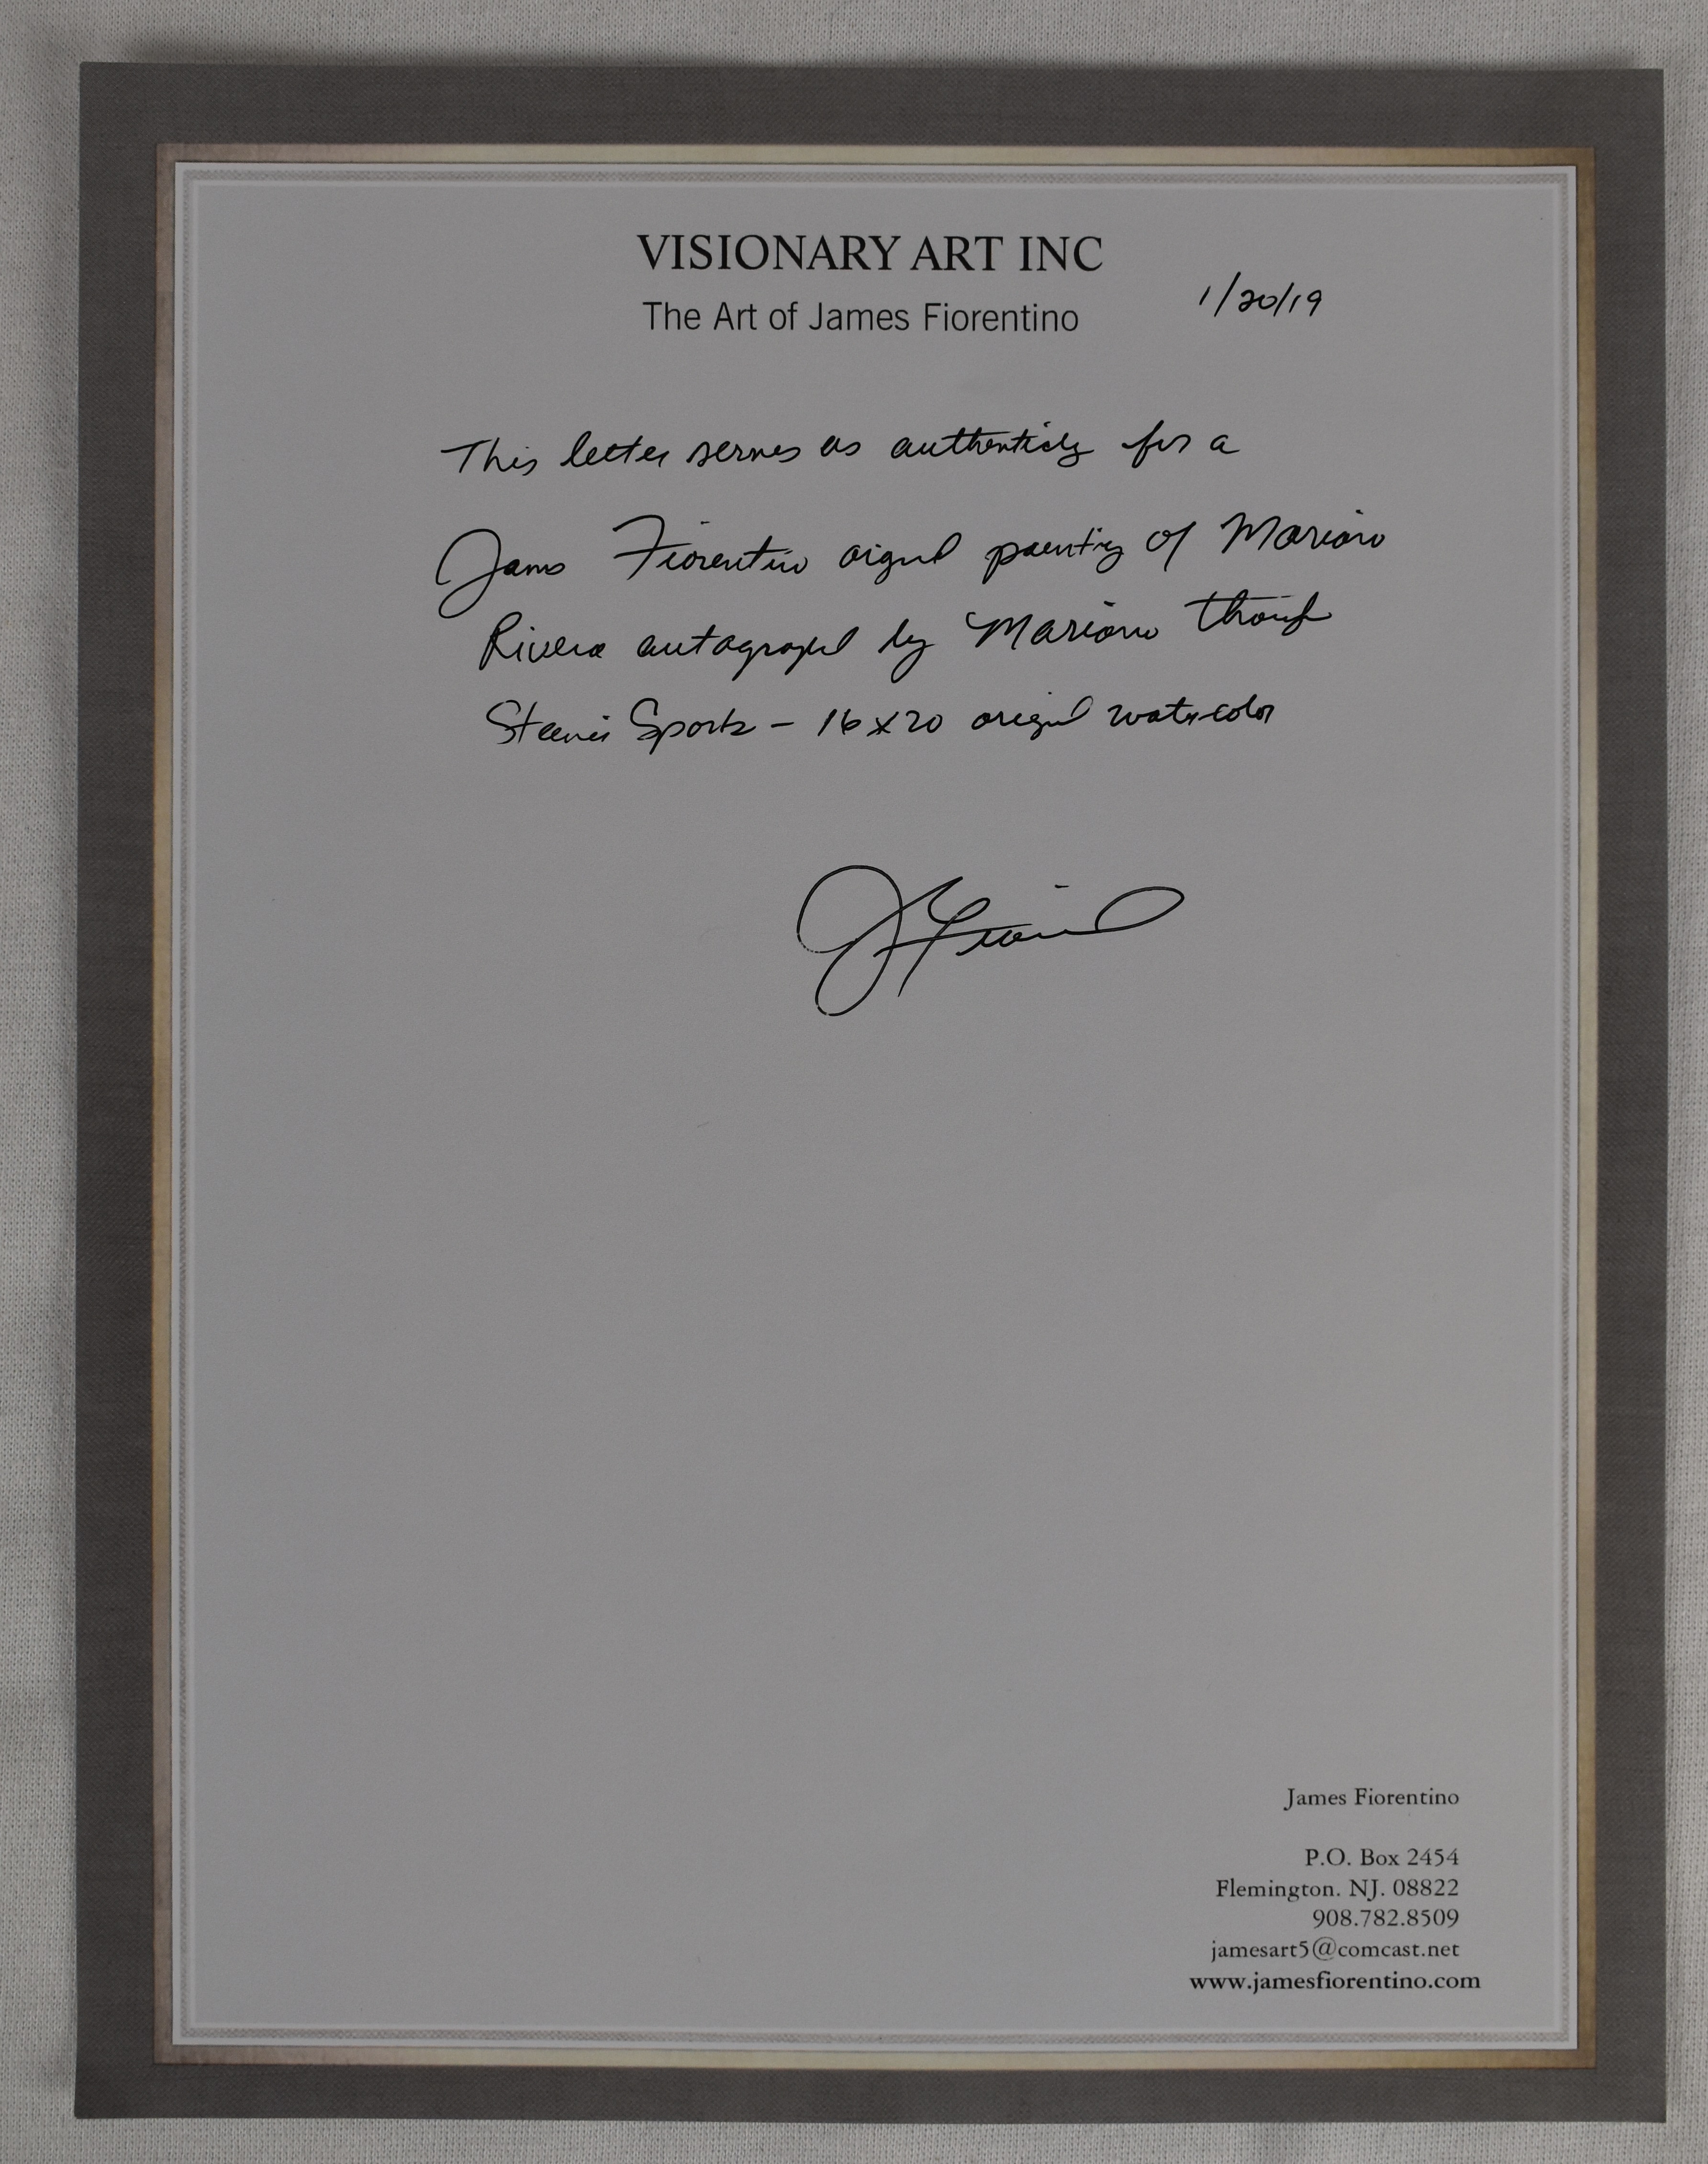 VISIONARY ART INC
The Art of James Fiorentino
1/20/19
This letter serves as authenticity for a
James Fiorentino original painting of Mariano
Rivera autographed by Mariano through
Steiner Sports - 16x20 original watercolor
James Fiorentino
P.O. Box 2454
Flemington. NJ. 08822
908.782.8509
jamesart5@comcast.net
www.jamesfiorentino.com